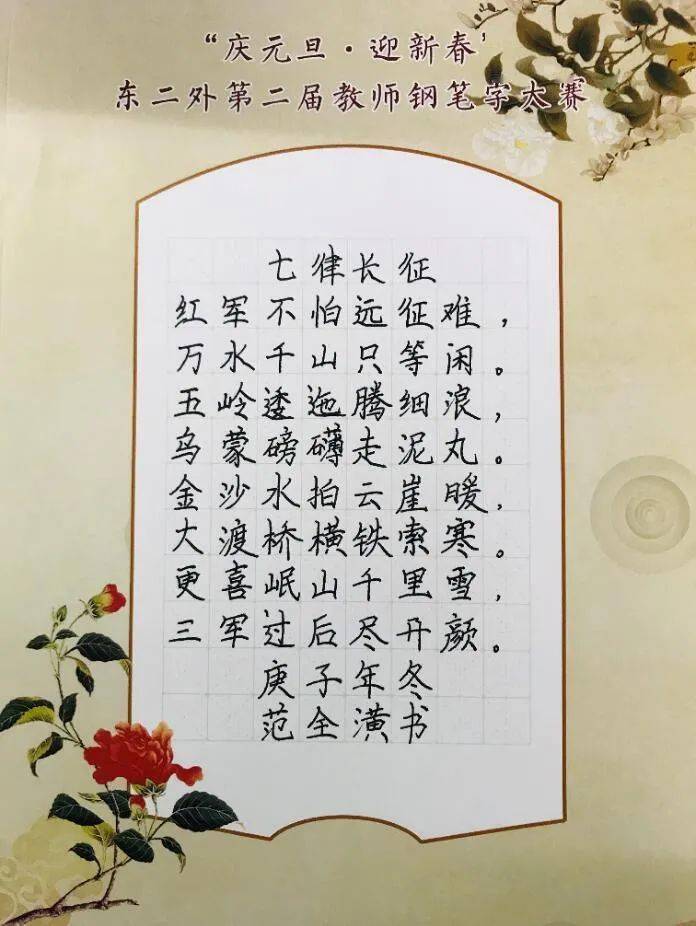 “庆元旦·迎新春’
东二外第二届教师钢笔字大赛
七律长征
红军不怕远征难，
万水千山只等闲。
五岭逶迤腾细浪，
乌蒙磅礴走泥丸。
金沙水拍云崖暖，
大渡桥横铁索寒。
更喜岷山千里雪，
三军过后尽开颜。
庚子年冬
范全潢书